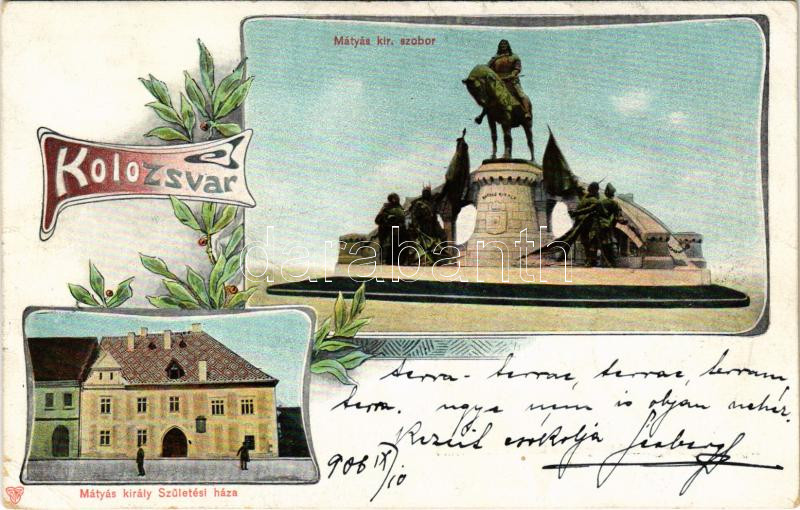 Mátyás kir. szobor
Kolozsvar
MÁTYÁS KIRÁLY
darabanth
terra - terrae, terrae, terram
terra. ugye nem is olyan nehéz.
Kezeit csókolja
908 IX/10
Mátyás király Születési háza